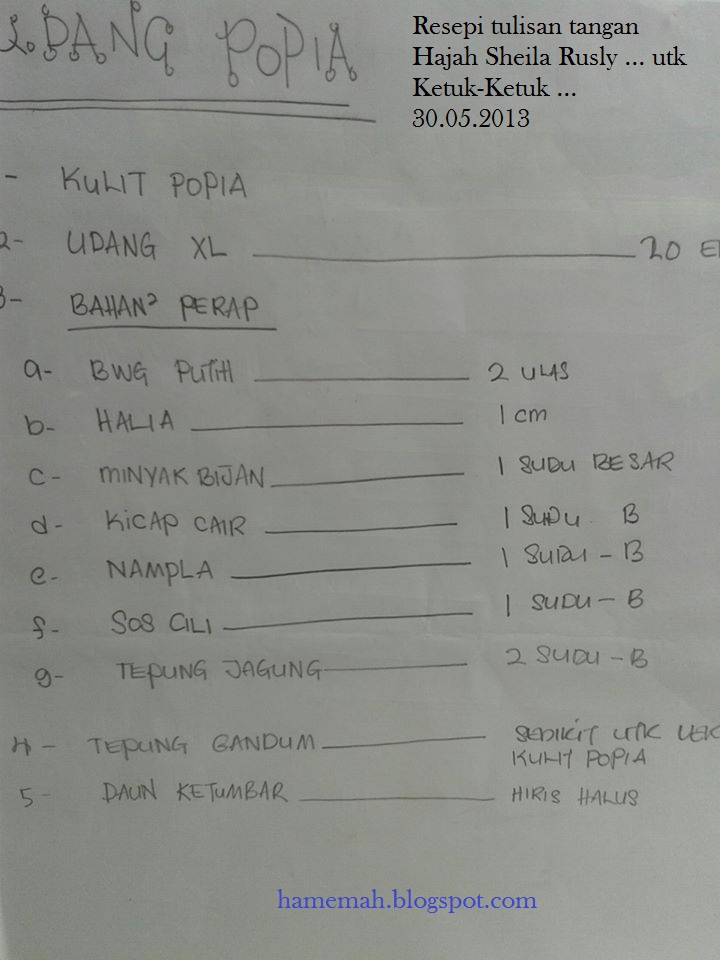 UDANG POPIA
Resepi tulisan tangan
Hajah Sheila Rusly ... utk
Ketuk-Ketuk ...
30.05.2013
- KULIT POPIA
2- UDANG XL 20 E
3- BAHAN² PERAP
a- BWG PUTIH 2 ULAS
b- HALIA 1 cm
c- MINYAK BIJAN 1 SUDU BESAR
d- KICAP CAIR 1 SUDU B
e- NAMPLA 1 SUDU - B
f- SOS CILI 1 SUDU - B
g- TEPUNG JAGUNG 2 SUDU - B
4- TEPUNG GANDUM SEDIKIT UTK
KULIT POPIA
5- DAUN KETUMBAR HIRIS HALUS
hamemah.blogspot.com